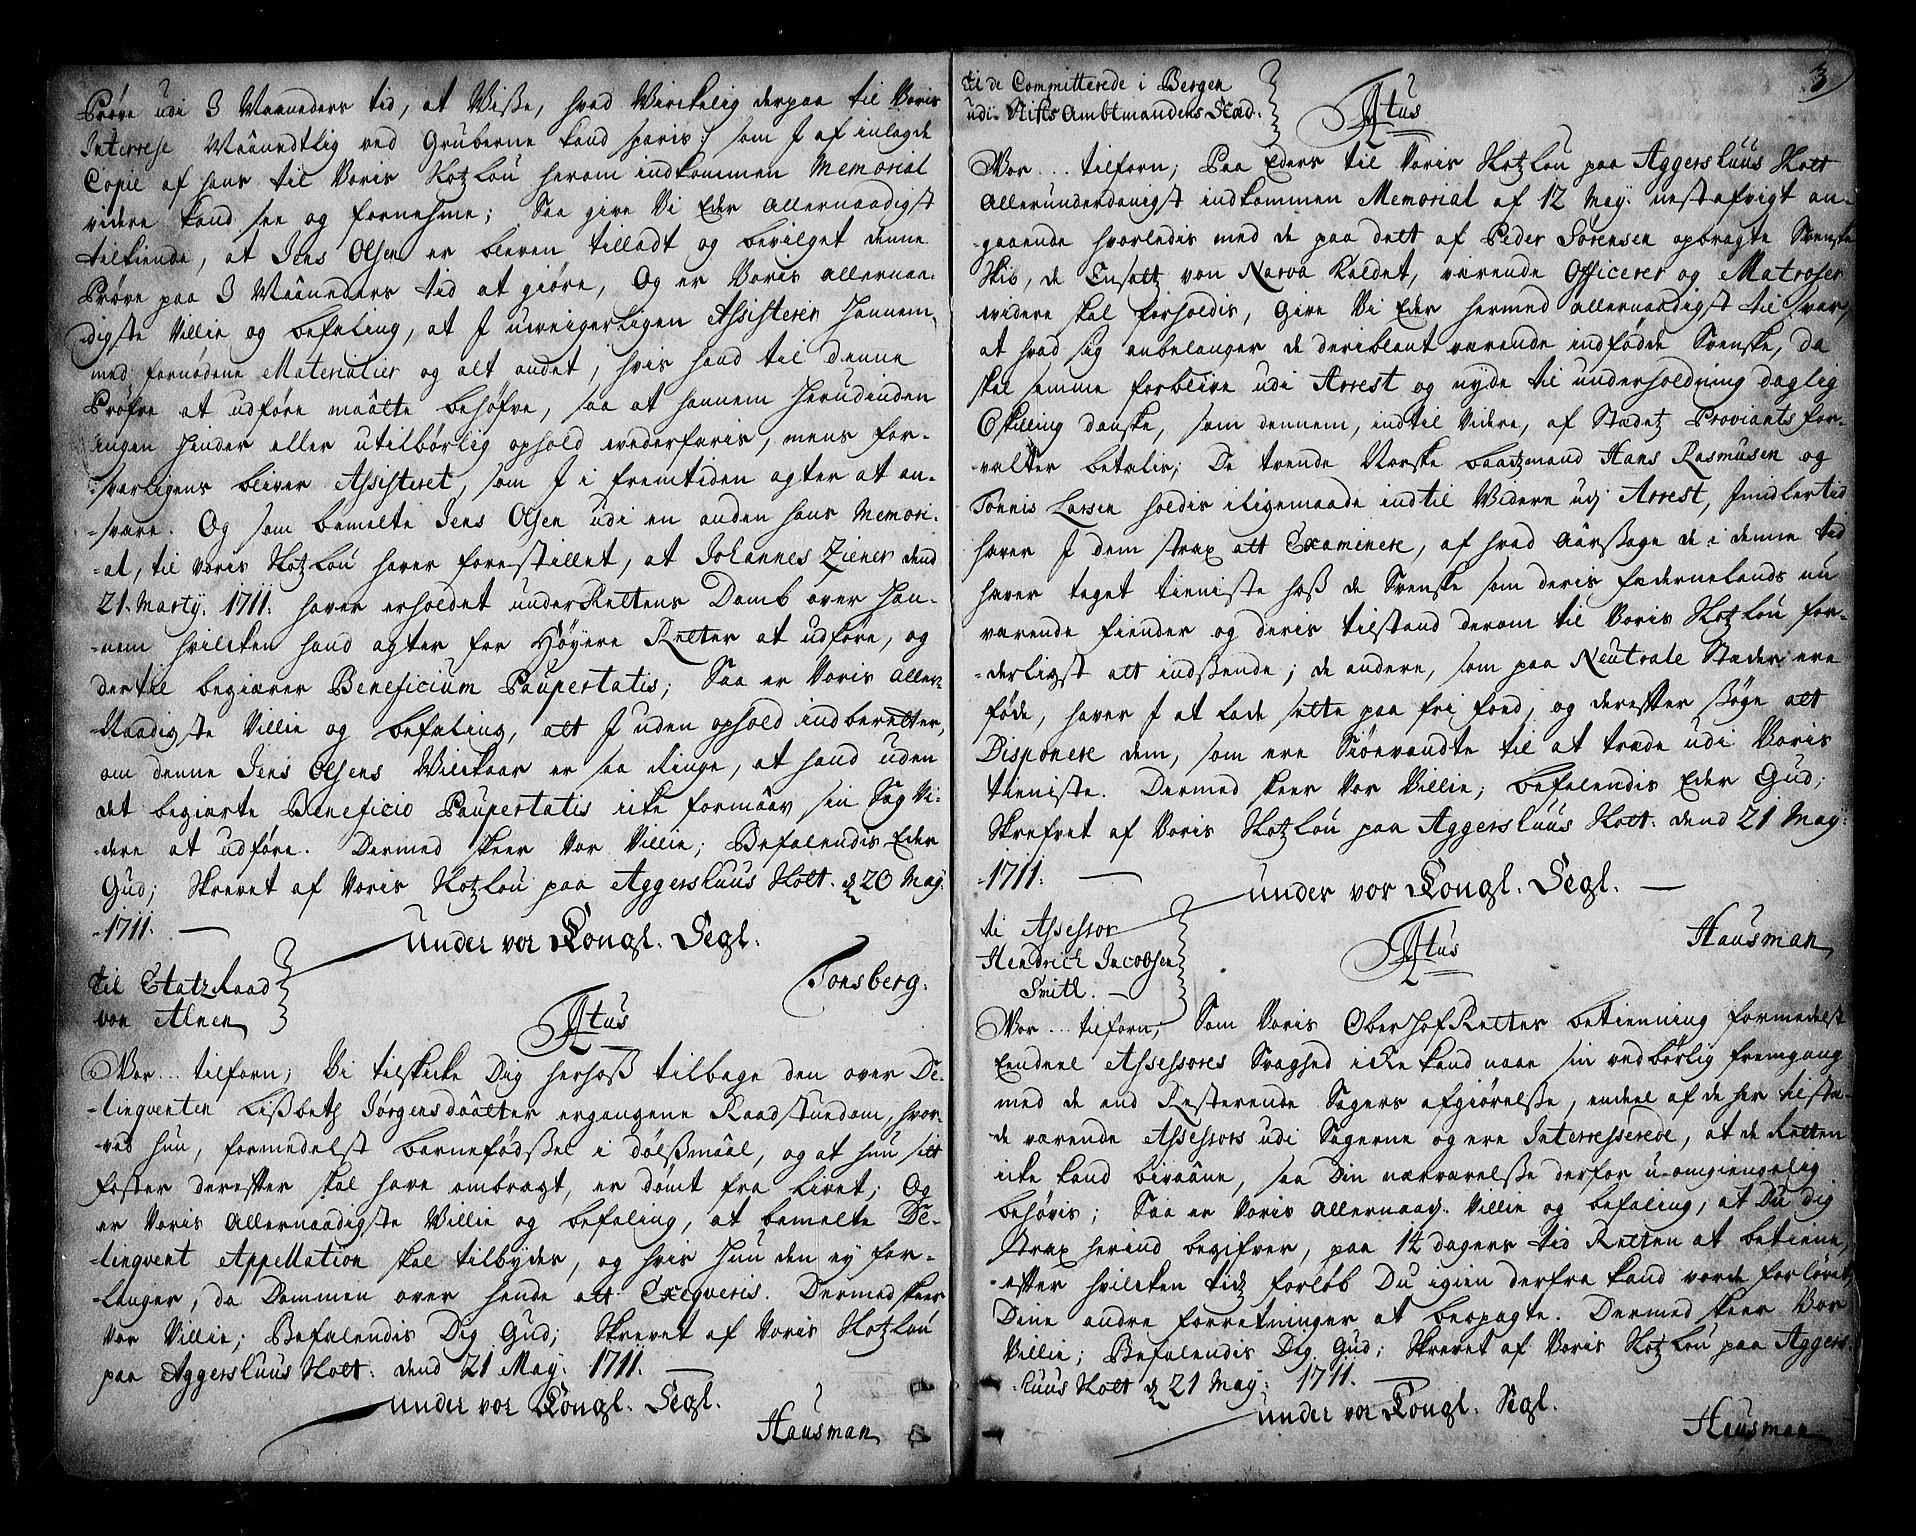 Prøve udi 3 Maaneders tid, at Viße, hvad Virckelig derpaa til Voris
Interese Maanedtlig ved Gruberne kand spaaris: som I af inlagde
Copie af hans til Voris Slotzlou herom indkommen Memorial
videre kand see og fornehme; Saa give Vi Eder allernaadigst
tilkiende, at Jens Olsen er bleven tilladt og bevilget denne
Prøve paa 3 Maaneders tid at giøre, Og er Voris allernaa-
-digste Villie og befaling, at I uweigerligen Assisterer Hannem
med fornødene Materialier og alt andet, hvis hand til denne
Prøfve at udføre maatte behøfve, saa at hannem herudinden
ingen hinder eller utilbørlig ophold wederfaris, mens for-
-svarligens bliver Assisteret, som I i fremtiden agter at an-
-svare. Og som bemelte Jens Olsen udi en anden hans Memori-
-al, til Voris Slotzlou haver forestillet, at Johannes Ziener dend
21. Marty. 1711. haver erholdet underRettens Domb over Han-
-nem hvilcken hand agter for Høyere Retter at udføre, og
dertil begiærer Beneficium Paupertatis; Saa er Voris aller-
-Naadigste Villie og befaling, att I uden ophold indberetter,
om denne Jens Olsens Vilckaar er saa Ringe, at hand uden
det begierte Beneficio Paupertatis icke formaar sin Sag Vi-
-dere at udføre. Dermed skeer Vor Villie; Befalendis Eder
Gud; Skrevet af Voris Slotzlou paa Aggershuus Slott. d 20 May.
-1711.
under vor Kongl. Segl.
Tonsberg.
til EtatzRaad
von Ahnen
Tit﻿us
Vor... tilforn; Vi tilskicke Dig herhoß tilbage den over De-
-linqventen Lißbeth Jørgensdaatter ergangene Raadstuedom, hvor-
-ved hun, formedelst barnefødßel i dølßmaal, og at hun sitt
foster derefter skal have ombragt, er dømt fra livet; Og
er Voris Allernaadigste Villie og befaling, at bemelte De-
-linqvent Appellation skal tilbydes, og hvis Hun den ey for-
-langer, da Dommen over hende att Exeqveris. Dermed skeer
Vor Villie; Befalendis Dig Gud; Skrevet af Voris Slotzlou
paa Aggershuus Slott. dend 21 May. 1711.
under vor Kongl. Segl.
Hausman
3
til de Committerede i Bergen
udi Stifts Ambtmandens Stæd.
Titus
Vor... tilforn; Paa Eders til Voris Slotzlou paa Aggershuus Slott
Allerunderdanigst indkommen Memorial af 12 May. nestafvigt an-
-gaaende hvorledis med de paa dett af Peder Sørensen opbragte Svenske
Skib, de Ensatt von Narva kaldet, værende Officerer og Matroser
widere skal forholdis, Give Vi Eder hermed allernaadigst til svar,
at hvad sig anbelanger de deriblant værende indfødde Svenske, da
skal samme forblive udi Arrest og nyde til underholdning daglig
6 skilling danske, som dennem, indtil Videre, af Stædetz Proviantsfor-
-valter betalis; De trende Norske baadzmænd Hans Rasmusen og
Tønnis Larsen holdis iligemaade indtil Videre udj Arrest, Imidlertid
haver I dem strax att Examinere, af hvad Aarßage de i denne tid
haver taget tieniste hoß de Svenske som deris fædernelands nu
værende fiender og deris tilstand derom til Voris Slotzlou for-
-derligst att indßende; de andere, som paa Neutrale Stæder ere
føde, haver I at lade sette paa fri foed, og derefter ßøge att
Disponere dem, som ere Siøevandte til at træde udi Voris
tieniste. Dermed skeer Vor Villie; befalendis Eder Gud;
Skrefvet af Voris Slotzlou paa Aggershuus Slott. dend 21 May.
-1711.
under vor Kongl. Segl.
Hausman
til Assessor
Hendrich Jacobsen
Smith.
Titus
Vor... tilforn; Som Voris OberHofRettes betienning formedelst
Eendeel Assessores Svaghed icke kand naae sin vedbørlig fremgang
med de end Resterende Sagers afgiørelße, endeel af de her tilstæ-
-de værende Assessors udi Sagerne og ere Interesserede, at de Retten
icke kand bivaane, saa Din nærværelße derfor u-omgiengelig
behøvis; Saa er Voris Allernaad. Villie og befaling, at Du dig
Strax herind begifver, paa 14 dagers tid Retten at betiene,
-efter hvilcken tidz forløb Du igien derfra kand vorde forløvet
Dine andre forretninger at beopagte. Dermed skeer Vor
Villie; Befalendis Dig Gud; Skrevet af Voris Slotzlou paa Aggers-
-huus Slott d 21 May. 1711.
under vor Kongl. Segl.
Hausman